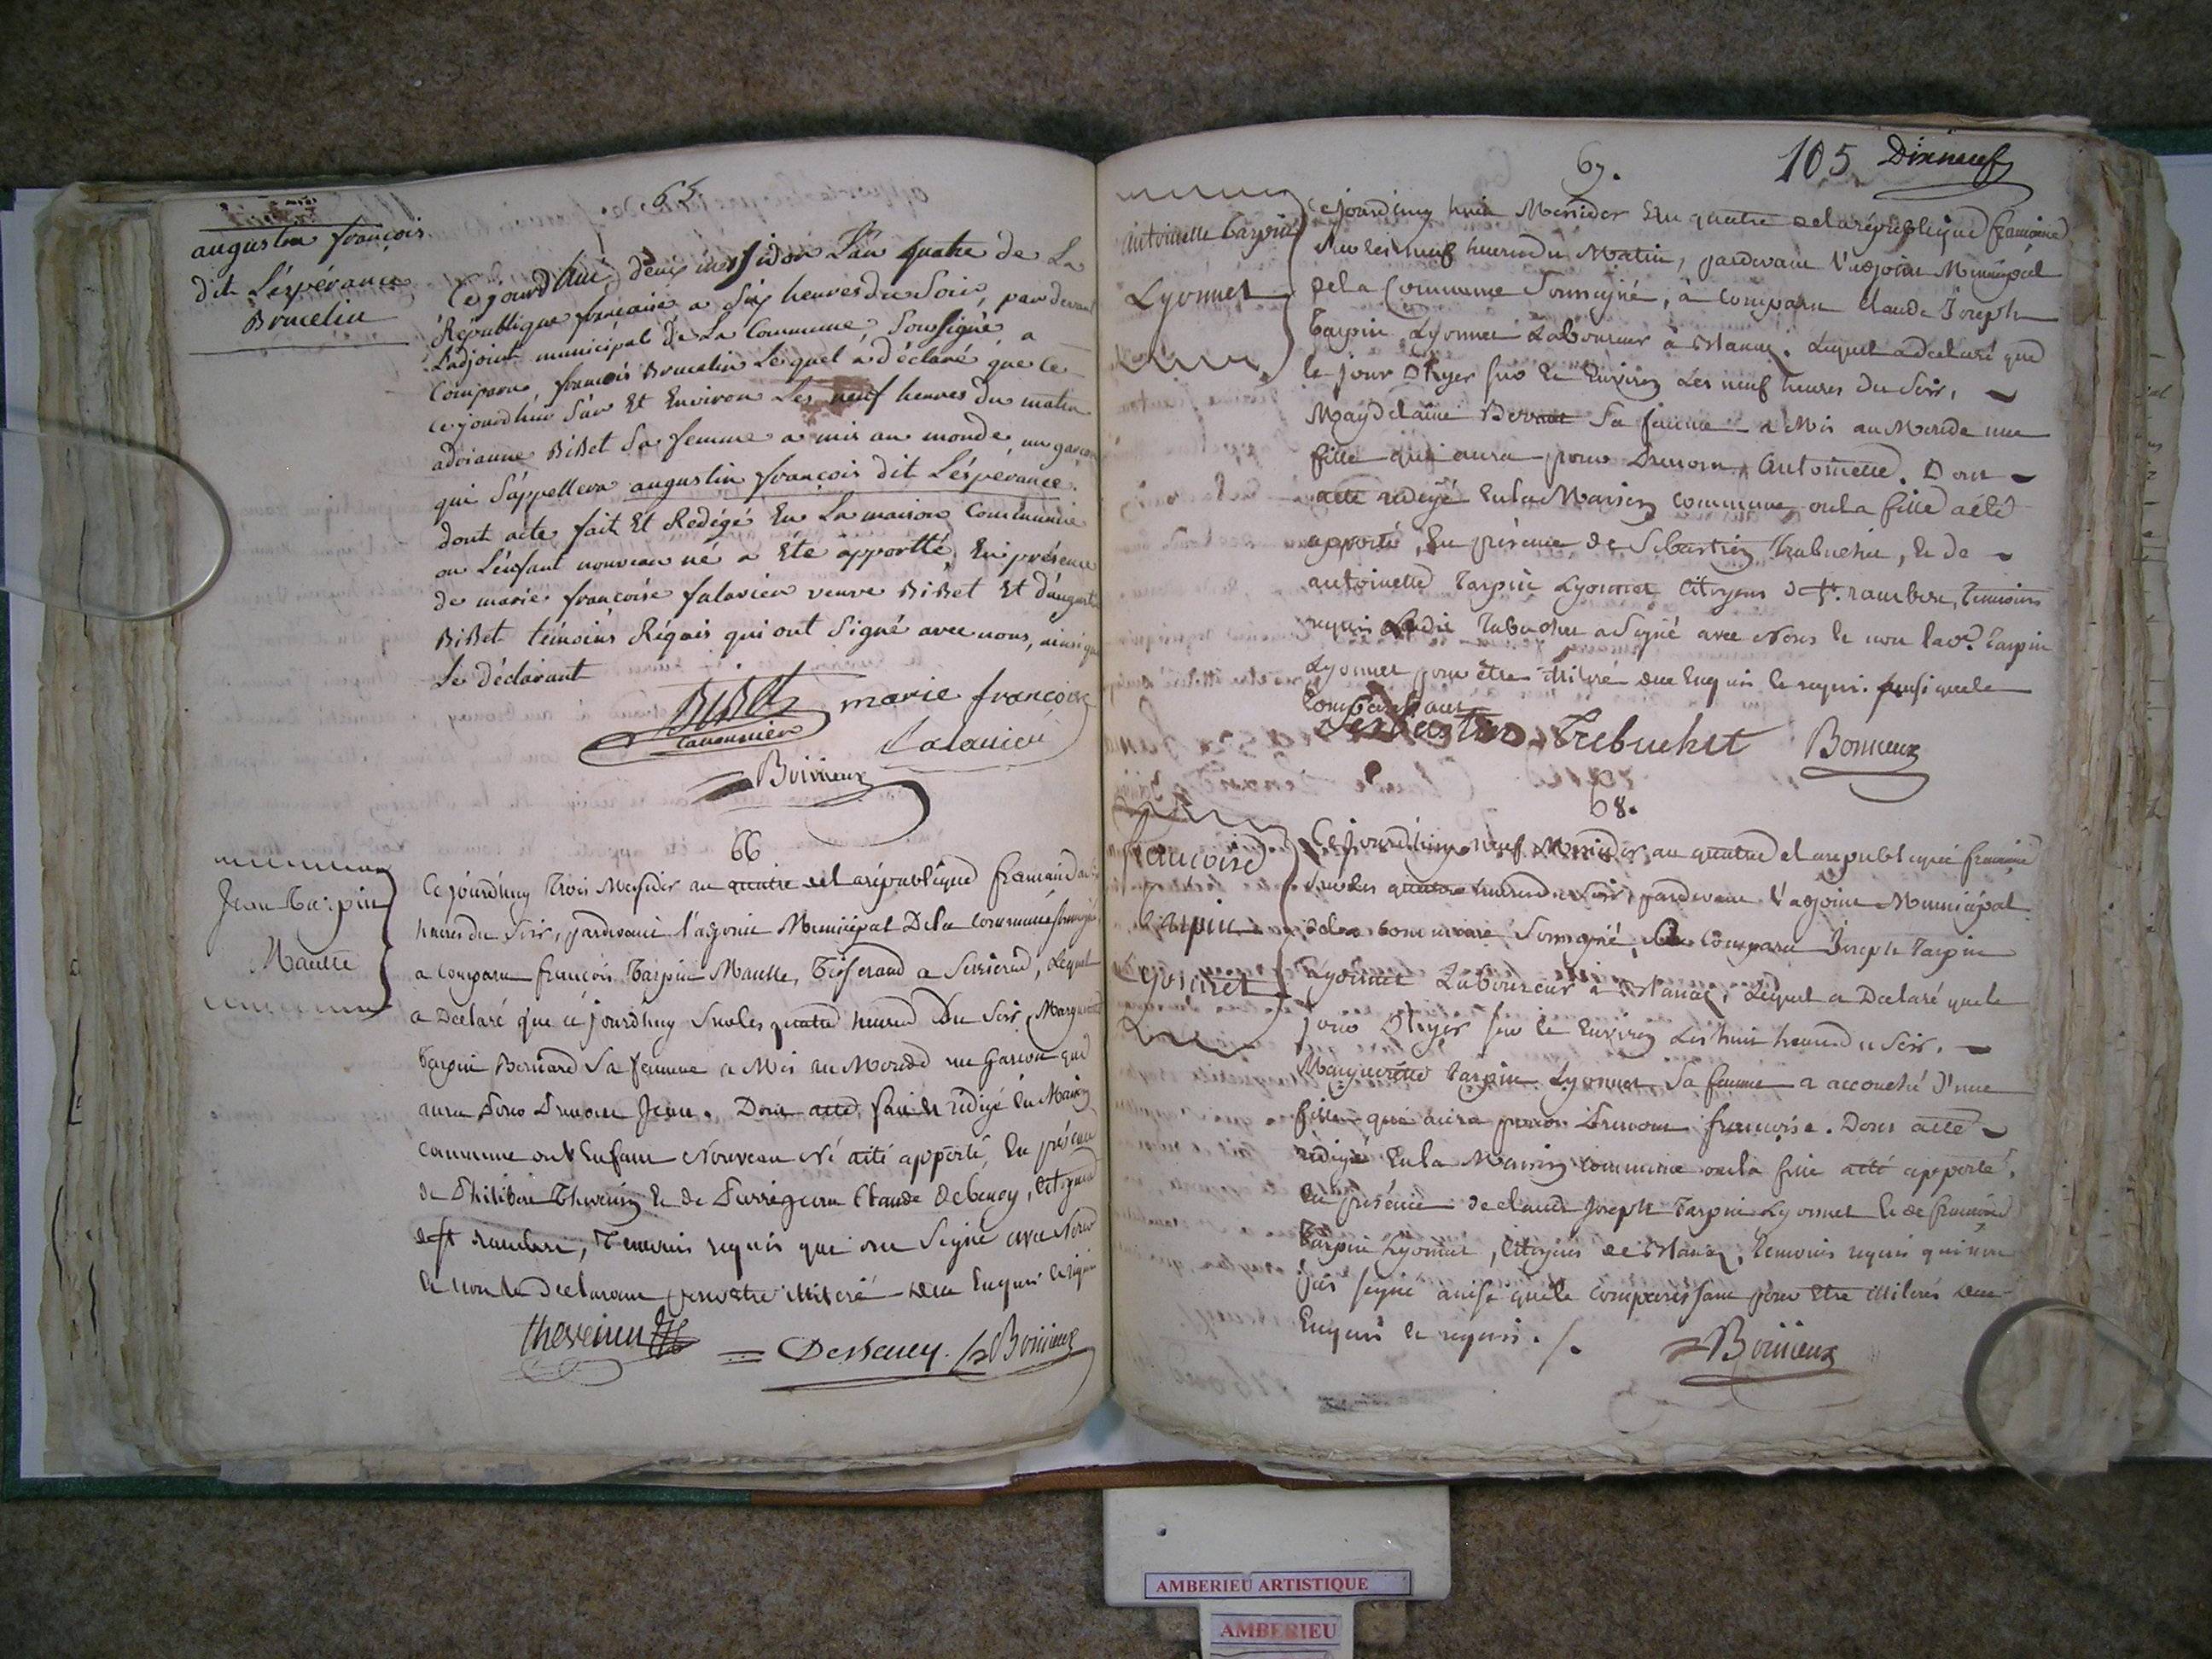 65.
augustin françois
dit L'éspérance
Brucelin
Cejourd'hui deux messidor L'an quatre de La
République francaise a Six heures du Soir, pardevant
L'adjoint municipal de La Commune Soussigné a
Comparu françois Brucelin Lequel a déclaré que ce
cejourd'hui Sur Et Environ Les neuf heures du matin
adrianne BiBet Sa femme a mis au monde un garçon
qui S'appellera augustin françois dit L'éspérance.
dont acte fait Et Redégé En La maison Commune
ou L'énfant nouveau né a Ete apportté, En présence
de marie françoise falavier veuve BiBet Et d'augustin
BiBet témoins Réquis qui ont Signé avec nous, ainsi que
Le déclarant
BiBet marie francoise
Canonnier
Boinieux
66
Jean Tarpin
Maulte
Cejourd'huy Trois Messidor an quatre de la république francaise
heures du Soir, pardevant l'adjoint Municipal De la Commune
a comparu francois Tarpin Maulte, Tisserand a Serrieres, Lequel
a Declaré que ce jourd'huy Sur les quatre heures du Soir Marguerite
Tarpin Bernard Sa femme a Mis au Monde un Garcon qui
aura Pour Prenom Jean. Dont acte, fait et redigé En Maison
Commune ou l'Enfant Nouveau Né a été apporté, En présence
de Philibert Thevenin et de Claude Debeney, Citoyens
de st rambert, Temoins requis qui ont Signé avec Nous
et non le Declarant pour etre illiteré De ce Enquis et requis
thevenin Debeney. Boinieux
105 Dixneuf
67.
Antoinette Tarpin
Lyonnet
Cejourd'huy huit Messidor l'an quatre de la république francaise
Sur les neuf heures du Matin, pardevant l'adjoint Municipal
de la Commune Soussigné, à Comparu Claude Joseph
Tarpin Lyonnet Laboureur à Blanaz. Lequel a declaré que
le jour D'hyer sur et Environ Les neuf heures du Soir,
Magdelaine Sa femme a Mis au Monde une
fille qui aura pour Prenom Antoinette. Dont
acte redigé En la Maison Commune ou la fille a été
apporté, En présence de Sebastien Trabuchet, et de
antoinette Tarpin Lyonnet Citoyens de st. rambert, Temoins
requis Ledit Tabuchet a Signé avec Nous et non lad. Tarpin
Lyonnet pour être illiteré de ce Enquis et requis. ainsi que le
Comparaissant
Sesbastien Trebuchet Bonieux
68.
Francoise
Tarpin
Lyonnet
Cejourd'huy neuf Messidor, an quatre de la republique francaise
Sur les quatre heures du Soir, pardevant l'adjoint Municipal
de la Commune Soussigné, a Comparu Joseph Tarpin
Lyonnet Laboureur à Blanaz, Lequel a Declaré que le
jour D'hyer sur et Environ Les huit heures du Soir,
Marguerite Tarpin Lyonnet Sa femme a accouché d'une
fille qui aura pour Prenom francoise. Dont acte
redigé En la Maison Commune ou la fille a été apporté,
En présence de claude Joseph Tarpin Lyonnet et de francoise
Tarpin Lyonnet, Citoyens de Blanaz, Temoins requis qui n'ont
pas signé ainsi que le comparaissant pour Etre illiterés de ce
Enquis et requis. /.
Boinieux
AMBERIEU ARTISTIQUE
AMBERIEU